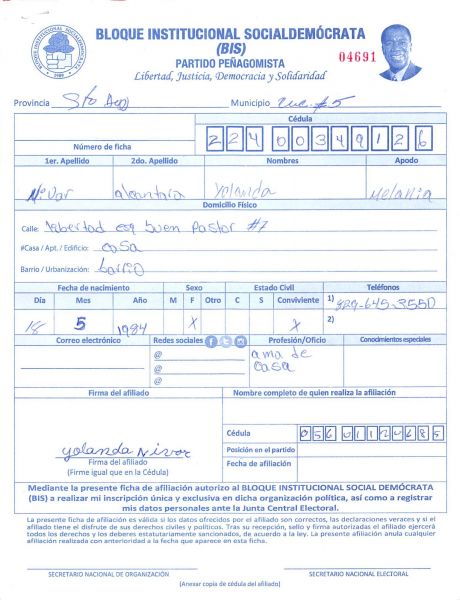 BLOQUE INSTITUCIONAL SOCIALDEMÓCRATA
(BIS)
PARTIDO PEÑAGOMISTA
Libertad, Justicia, Democracia y Solidaridad
04691
BLOQUE INSTITUCIONAL SOCIALDEMOCRATA
Provincia Sto Municipio #5
Cédula
Número de ficha 22400349126
1er. Apellido 2do. Apellido Nombres Apodo
Nivar alcantara Yolanda Melania
Domicilio Físico
Calle: libertad esq buen Pastor #7
#Casa / Apt. / Edificio: casa
Barrio / Urbanización: barrio
Fecha de nacimiento Sexo Estado Civil Teléfonos
Día Mes Año M F Otro C S Conviviente 1) 829-645-3550
18 5 1984 X X 2)
Correo electrónico Redes sociales Profesión/Oficio Conocimientos especiales
@ ama de
@ casa
@
Firma del afiliado Nombre completo de quien realiza la afiliación
Cédula 05601124685
yolanda Nivar
Posición en el partido
Firma del afiliado
Fecha de afiliación
(Firme igual que en la Cédula)
Mediante la presente ficha de afiliación autorizo al BLOQUE INSTITUCIONAL SOCIAL DEMÓCRATA
(BIS) a realizar mi inscripción única y exclusiva en dicha organización política, así como a registrar
mis datos personales ante la Junta Central Electoral.
La presente ficha de afiliación es válida si los datos ofrecidos por el afiliado son correctos, las declaraciones veraces y si el
afiliado tiene el disfrute de sus derechos civiles y políticos. Tras su recepción, sello y firma autorizados el afiliado ejercerá
todos los derechos y los deberes estatutariamente sancionados, de acuerdo a la ley. La presente afiliación anula cualquier
afiliación realizada con anterioridad a la fecha que aparece en esta ficha.
SECRETARIO NACIONAL DE ORGANIZACIÓN SECRETARIO NACIONAL ELECTORAL
(Anexar copia de cédula del afiliado)